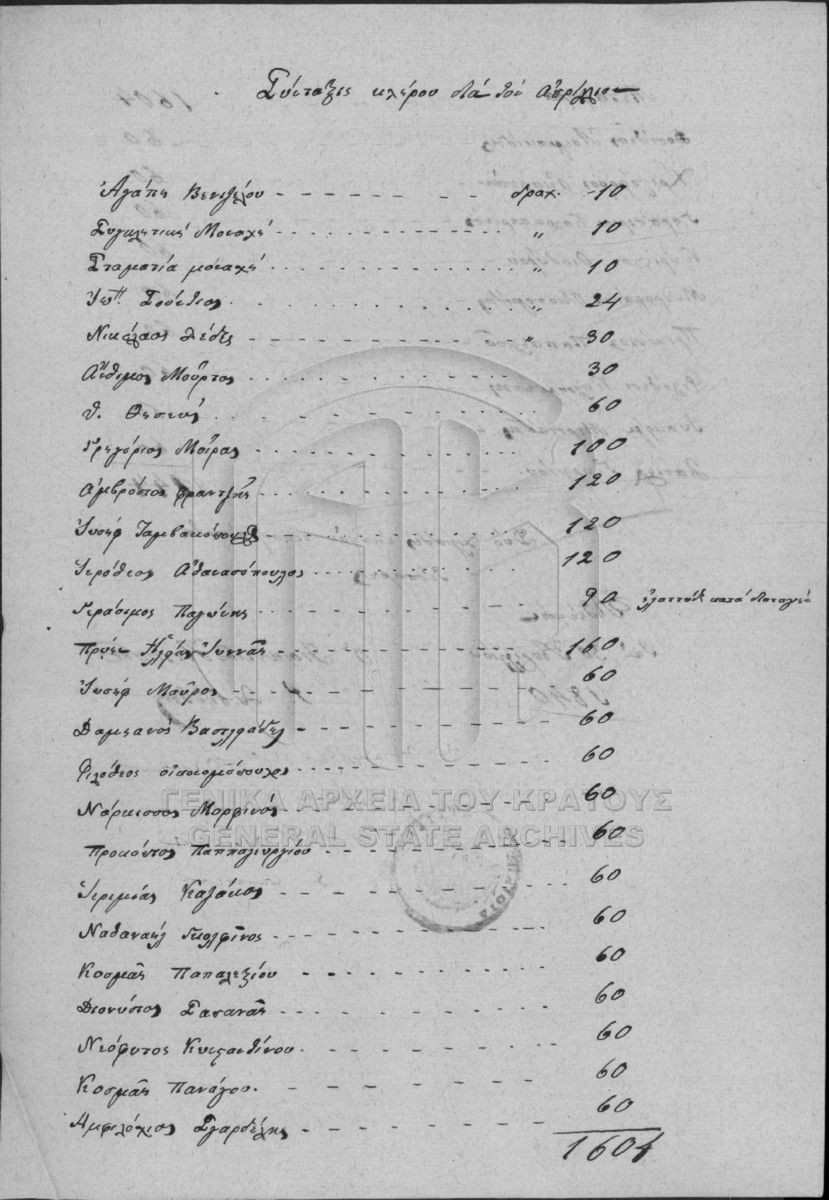 Σύνταξις κλήρου διά τον Απρίλιον
Αγάπη Βενιζέλου δραχ. 10
Συγκλητική Μοναχή „ 10
Σταματία μοναχή „ 10
Σωσίθεος „ 24
Νικόλαος „ 30
Άνθιμος Μούρτος 30
Θ. Θησεύς 60
Γρηγόριος Μοίρας 100
Αμβρόσιος Φραντζής 120
Ιωσήφ Ζαμβακόπουλος 120
Ιερόθεος Αθανασόπουλος 120
Γεράσιμος Παγώνης 90 κατά διαταγήν
Πρώην Ηλείας 160
Ιωσήφ Μαύρος 60
Δαμιανός Βασιλειάδης 60
Φιλόθεος οικονομόπουλος 60
Νάρκισσος Μορφινός 60
Προκόπιος Παππαγεωργίου 60
Ιερεμίας Καλάκος 60
Ναθαναήλ Γκολφίνος 60
Κοσμάς Παπαλεξίου 60
Διονύσιος 60
Νεόφυτος 60
Κοσμάς Πανάγου 60
Αμφιλόχιος Σγαρδέλης 60
1604
ΓΕΝΙΚΑ ΑΡΧΕΙΑ ΤΟΥ ΚΡΑΤΟΥΣ
GENERAL STATE ARCHIVES